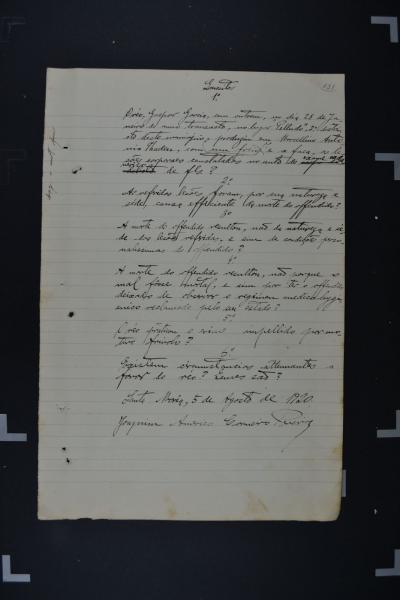 131
Quesitos
1º
O réo, Gaspar Garcia, em outem, no dia 28 de Ja-
neiro do anno transacto, no lugar "Pelludo", 2º distri-
cto deste municipio, produziu em Marcellino Anto-
nio Machado, com um e a faca, as le-
sões corporaes constatadas no auto de
de fls?
2º
As referidas lesões foram, por sua natureza e
séde, causa efficiente da morte do offendido?
3º
A morte do offendido resultou, não da natureza e sé-
de das lesões referidas, e sim de condições perso-
nalissimas do offendido?
4º
A morte do offendido resultou, não porque o
mal fosse mortal, e sim por ter o offendido
deixado de observar o regimen medico hygi-
enico reclamado pelo seu estado?
5º
O réo praticou o crime impellido por mo-
tivo frivolo?
6º
Existem circumstancias attenuantes a
favor do réo? Quaes são?
Santa Maria, 5 de Agosto de 1920.
Joaquim Americo Carneiro Pereira